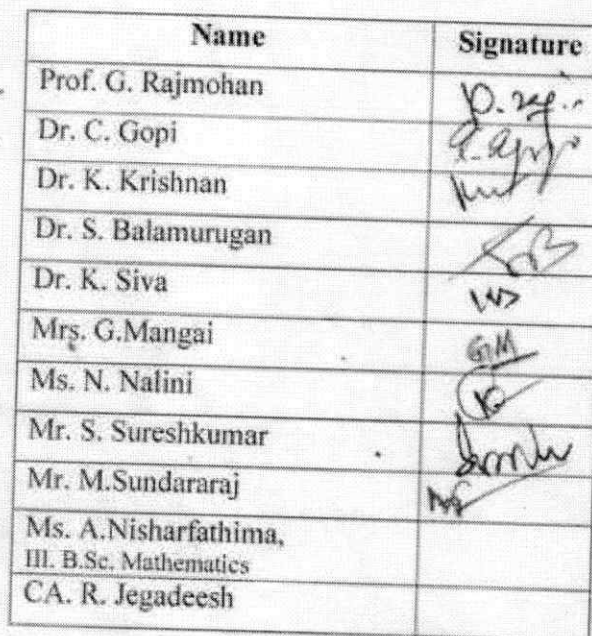 Name Signature
Prof. G. Rajmohan
Dr. C. Gopi
Dr. K. Krishnan
Dr. S. Balamurugan
Dr. K. Siva
Mrs. G.Mangai GM
Ms. N. Nalini
Mr. S. Sureshkumar
Mr. M.Sundararaj
Ms. A.Nisharfathima,
III. B.Sc. Mathematics
CA. R. Jegadeesh